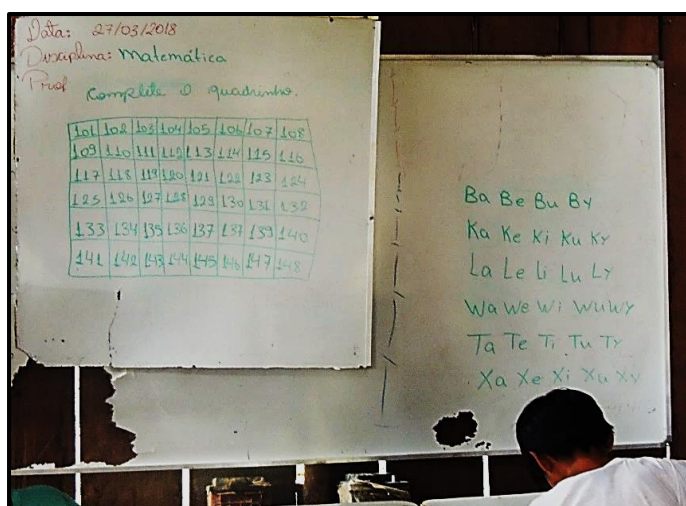 Data: 27/03/2018
Disciplina: Matemática
Prof
Complete o quadrinho.
101 102 103 104 105 106 107 108
109 110 111 112 113 114 115 116
117 118 119 120 121 122 123 124
125 126 127 128 129 130 131 132
133 134 135 136 137 137 139 140
141 142 143 144 145 146 147 148
Ba Be Bu By
Ka Ke Ki Ku Ky
La Le Li Lu Ly
Wa We Wi Wu Wy
Ta Te Ti Tu Ty
Xa Xe Xi Xu Xy